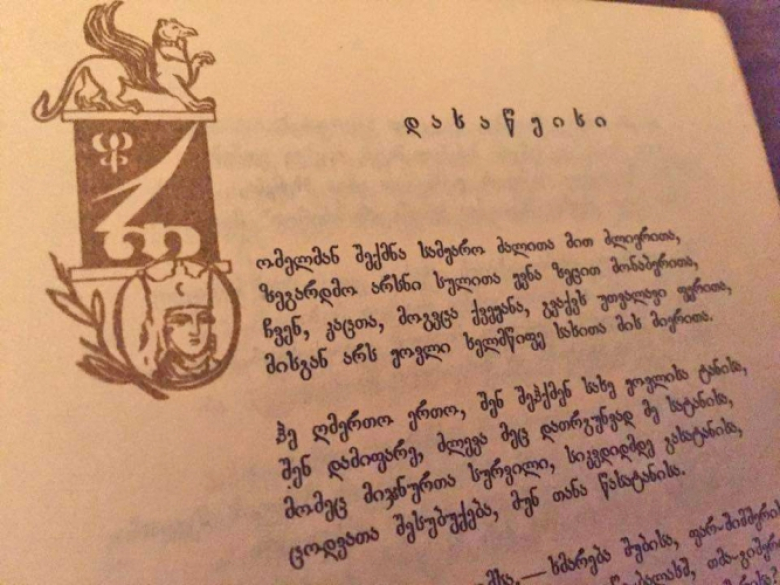 დ ა ს ა წ ყ ი ს ი
რომელმან შექმნა სამყარო ძალითა მით ძლიერითა,
ზეგარდმო არსნი სულითა ყვნა ზეცით მონაბერითა,
ჩვენ, კაცთა, მოგვცა ქვეყანა, გვაქვს უთვალავი ფერითა,
მისგან არს ყოვლი ხელმწიფე სახითა მის მიერითა.
ჰე ღმერთო ერთო, შენ შეჰქმენ სახე ყოვლისა ტანისა,
შენ დამიფარე, ძლევა მეც დათრგუნვად მე სატანისა,
მომეც მიჯნურთა სურვილი, სიკვდიდმდე გასატანისა,
ცოდვათა შესუბუქება, მუნ თანა წასატანისა.
— ხმარება შუბისა,